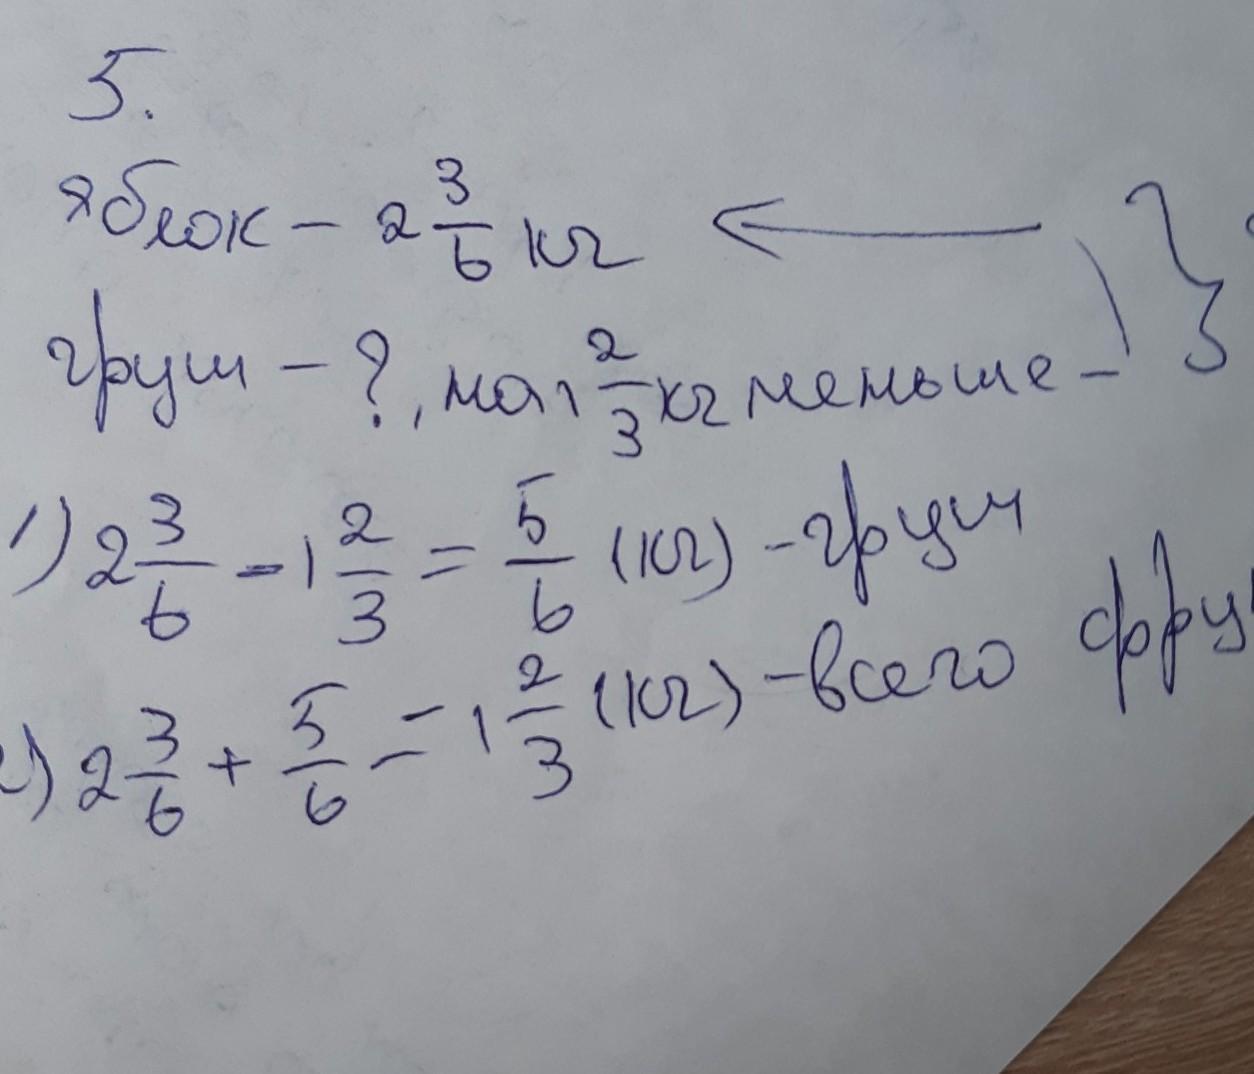 5.
яблок – 2 3/6 кг
груш – ?, на 1 2/3 кг меньше
1) 2 3/6 - 1 2/3 = 5/6 (кг) - груш
2) 2 3/6 + 5/6 = 1 2/3 (кг) - всего